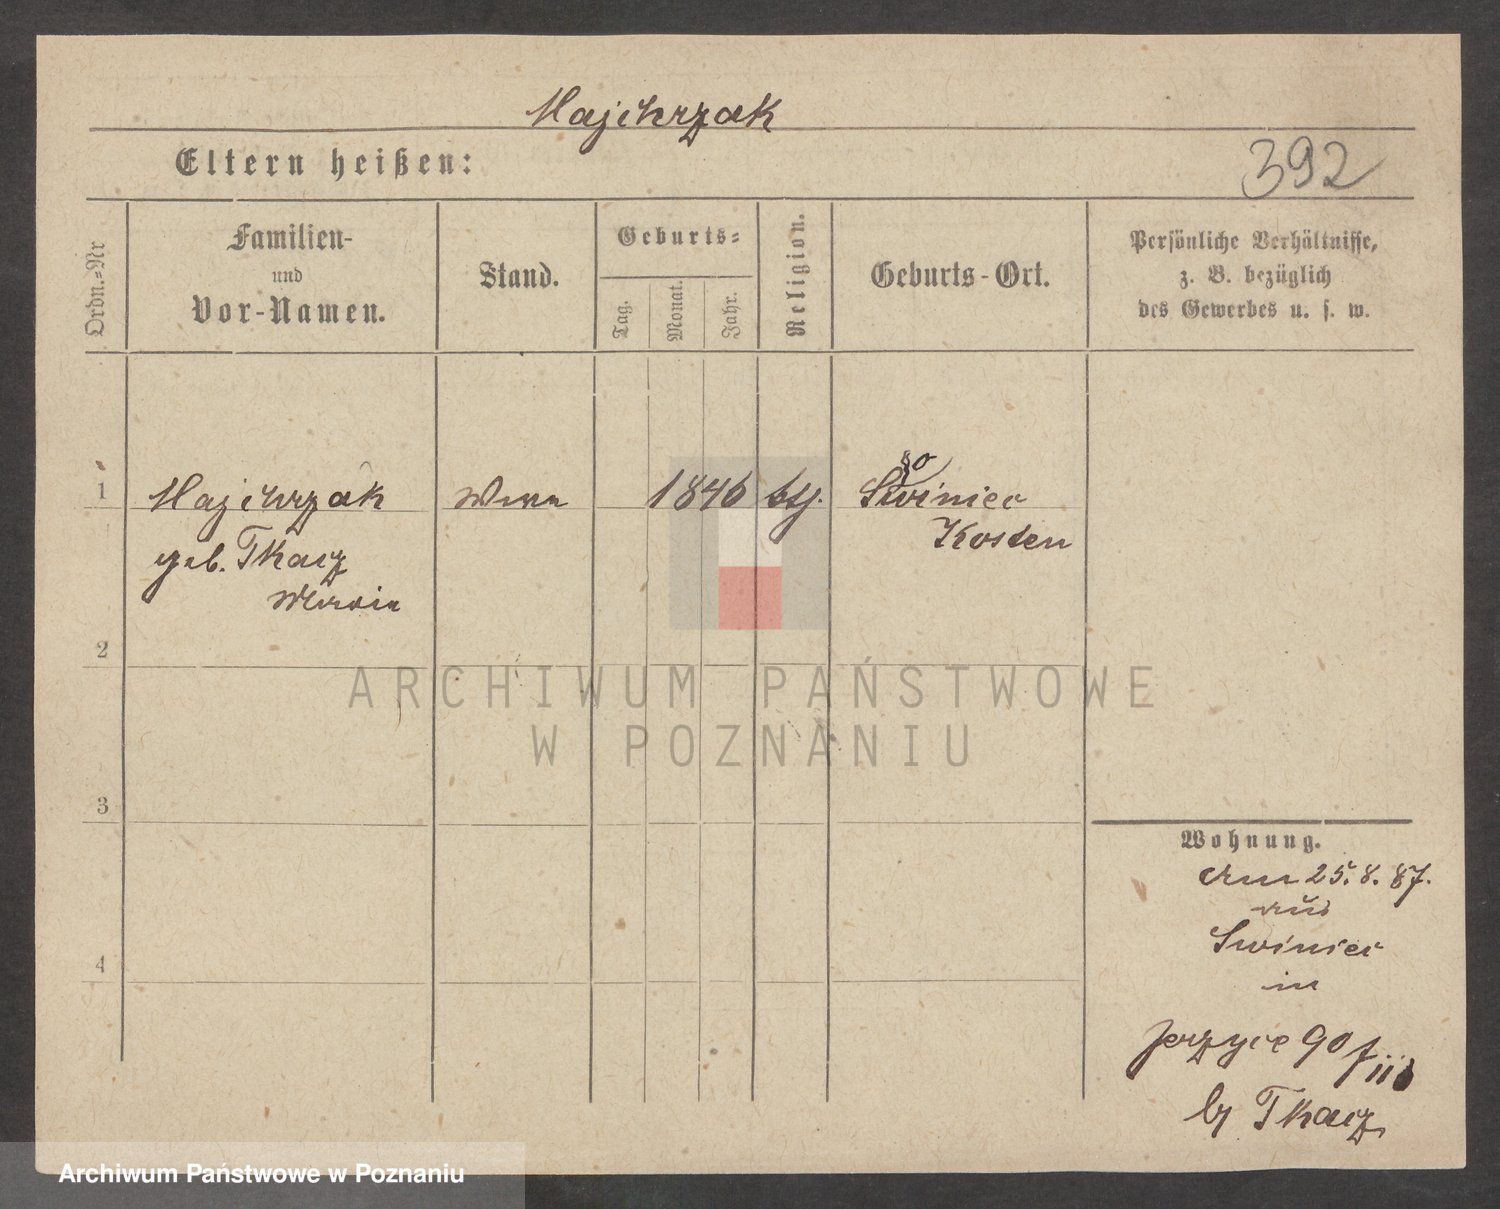 Majchrzak
Eltern heißen:
392
Ordn.-Nr
Familien-
und
Vor-Namen.
Stand.
Geburts-
Tag.
Monat.
Jahr.
Religion.
Geburts-Ort.
Persönliche Verhältnisse,
z. B. bezüglich
des Gewerbes u. s. w.
1
Majchrzak
geb. Tkacz
1846
Swiniec
Kosten
2
3
4
Wohnung.
am 25.8.87.
aus
Swiniec
in
Jerzyce 90
Tkacz
ARCHIWUM PAŃSTWOWE
W POZNANIU
Archiwum Państwowe w Poznaniu